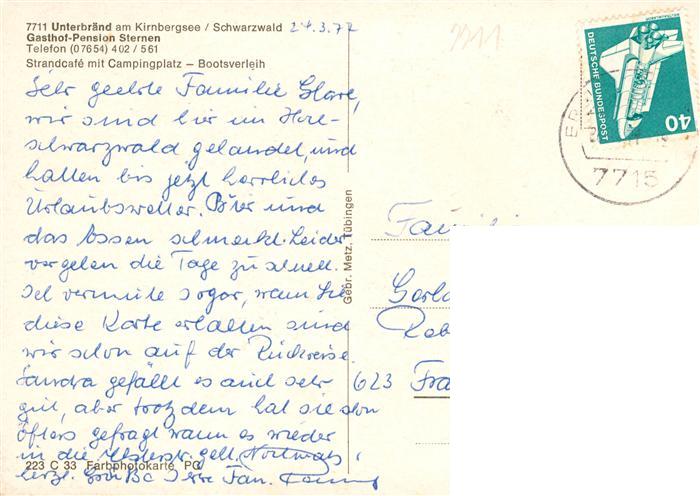 7711 Unterbränd am Kirnbergsee / Schwarzwald 24.3.77
Gasthof-Pension Sternen
Telefon (07654) 402 / 561
Strandcafé mit Campingplatz – Bootsverleih
Sehr geehrte Familie
wir sind hier im Hoch-
schwarzwald gelandet, und
hatten bis jetzt herrliches
Urlaubswetter. Bier und
das Essen schmeckt. Leider
vergehen die Tage zu schnell.
Ich vermute sogar, wenn Sie
diese Karte erhalten sind
wir schon auf der Rückreise.
Sandra gefällt es auch sehr
gut, aber trotzdem hat sie schon
öfters gefragt wann es wieder
in die geht.
herzl. Ihre Fam.
223 C 33 Farbphotokarte PG
Gebr. Metz, Tübingen
7711
DEUTSCHE BUNDESPOST
40
7715
Famili
623 Fra